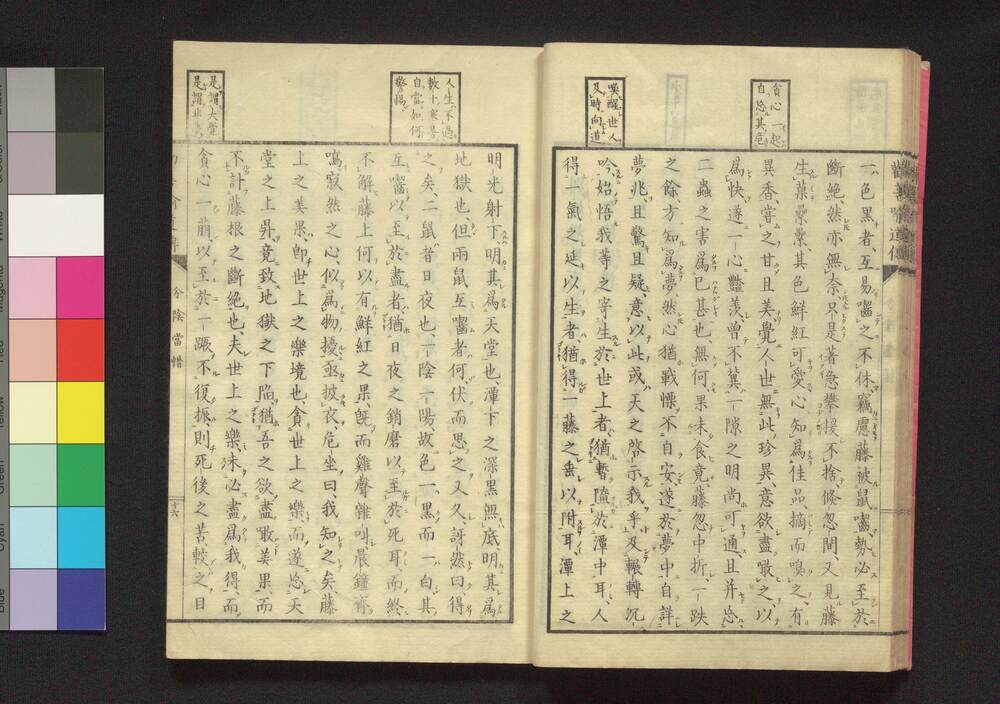 貪心一起
自忘其危
喚醒世人
及時向道
一色黑者、互易嚙之不休、竊慮藤被鼠嚙、勢必至於
斷絕、然亦無奈、只是著急攀援不捨、倏忽間、又見藤
生菓纍纍、其色鮮紅可愛、心知爲佳品、摘而嗅之、有
異香、嘗之甘且美、覺人世無此珍異、意欲盡噉之以
爲快、遂一心豔羨、曾不冀一隙之明尚可通、且并忘
二蟲之害爲已甚也、無何果未食竟、藤忽中折、一跌
之餘、方知爲夢、然心猶戰慄、不自安、遂於夢中自詳
夢兆、且驚且疑、意以此或天之啓示我乎、及輾轉沉
吟、始悟我等之寄生於世上者、猶暫陷於潭中耳、人
得一氣之延以生者、猶得一藤之垂以附耳、潭上之
人生不過
數十寒暑
自當如何
警惕
是謂大覺
明光射下、明其爲天堂也、潭下之深黑無底、明其爲
地獄也、但兩鼠互嚙者何、伏而思之又久、訝然曰、得
之矣、二鼠者日夜也、一陰一陽、故色一黑而一白、其
互嚙以至於盡者、猶日夜之銷磨以至於死耳、而終
不解藤上何以有鮮紅之果、旣而雞聲雜叫、晨鐘齊
鳴、寂然之心、似爲物擾、亟披衣危坐曰、我知之矣、藤
上之美果、卽世上之樂境也、貪世上之樂、而遂忘天
堂之上昇、竟致地獄之下陷、猶吾之欲盡噉美果、而
不計藤根之斷絕也、夫世上之樂、未必盡爲我得、而
貪心一萌、以至於一蹶不復振、則死後之苦、較之日
分陰當惜
十六